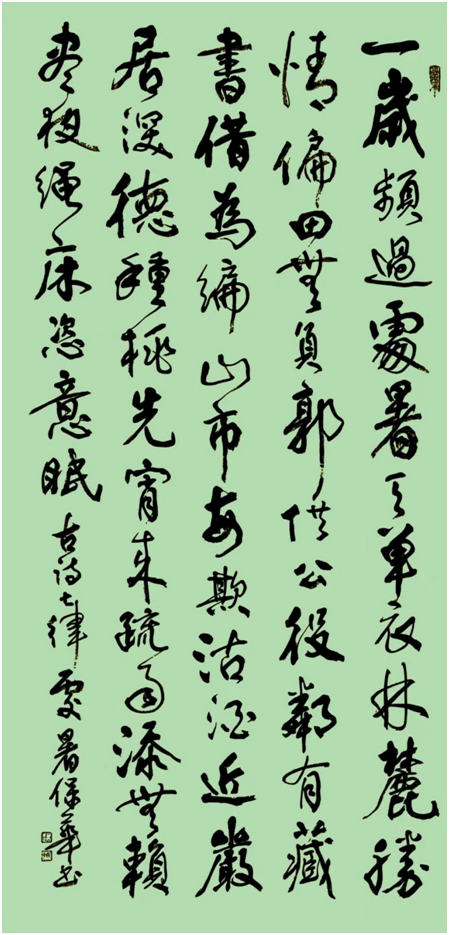 一歲頻過處暑天單衣林麓勝
情偏田無負郭供公役鄰有藏
書借為編山市每欺沽酒近巖
居深德種桃先宵來疏雨添無賴
盡夜繩床恣意眠 古詩七律 處暑 保華書